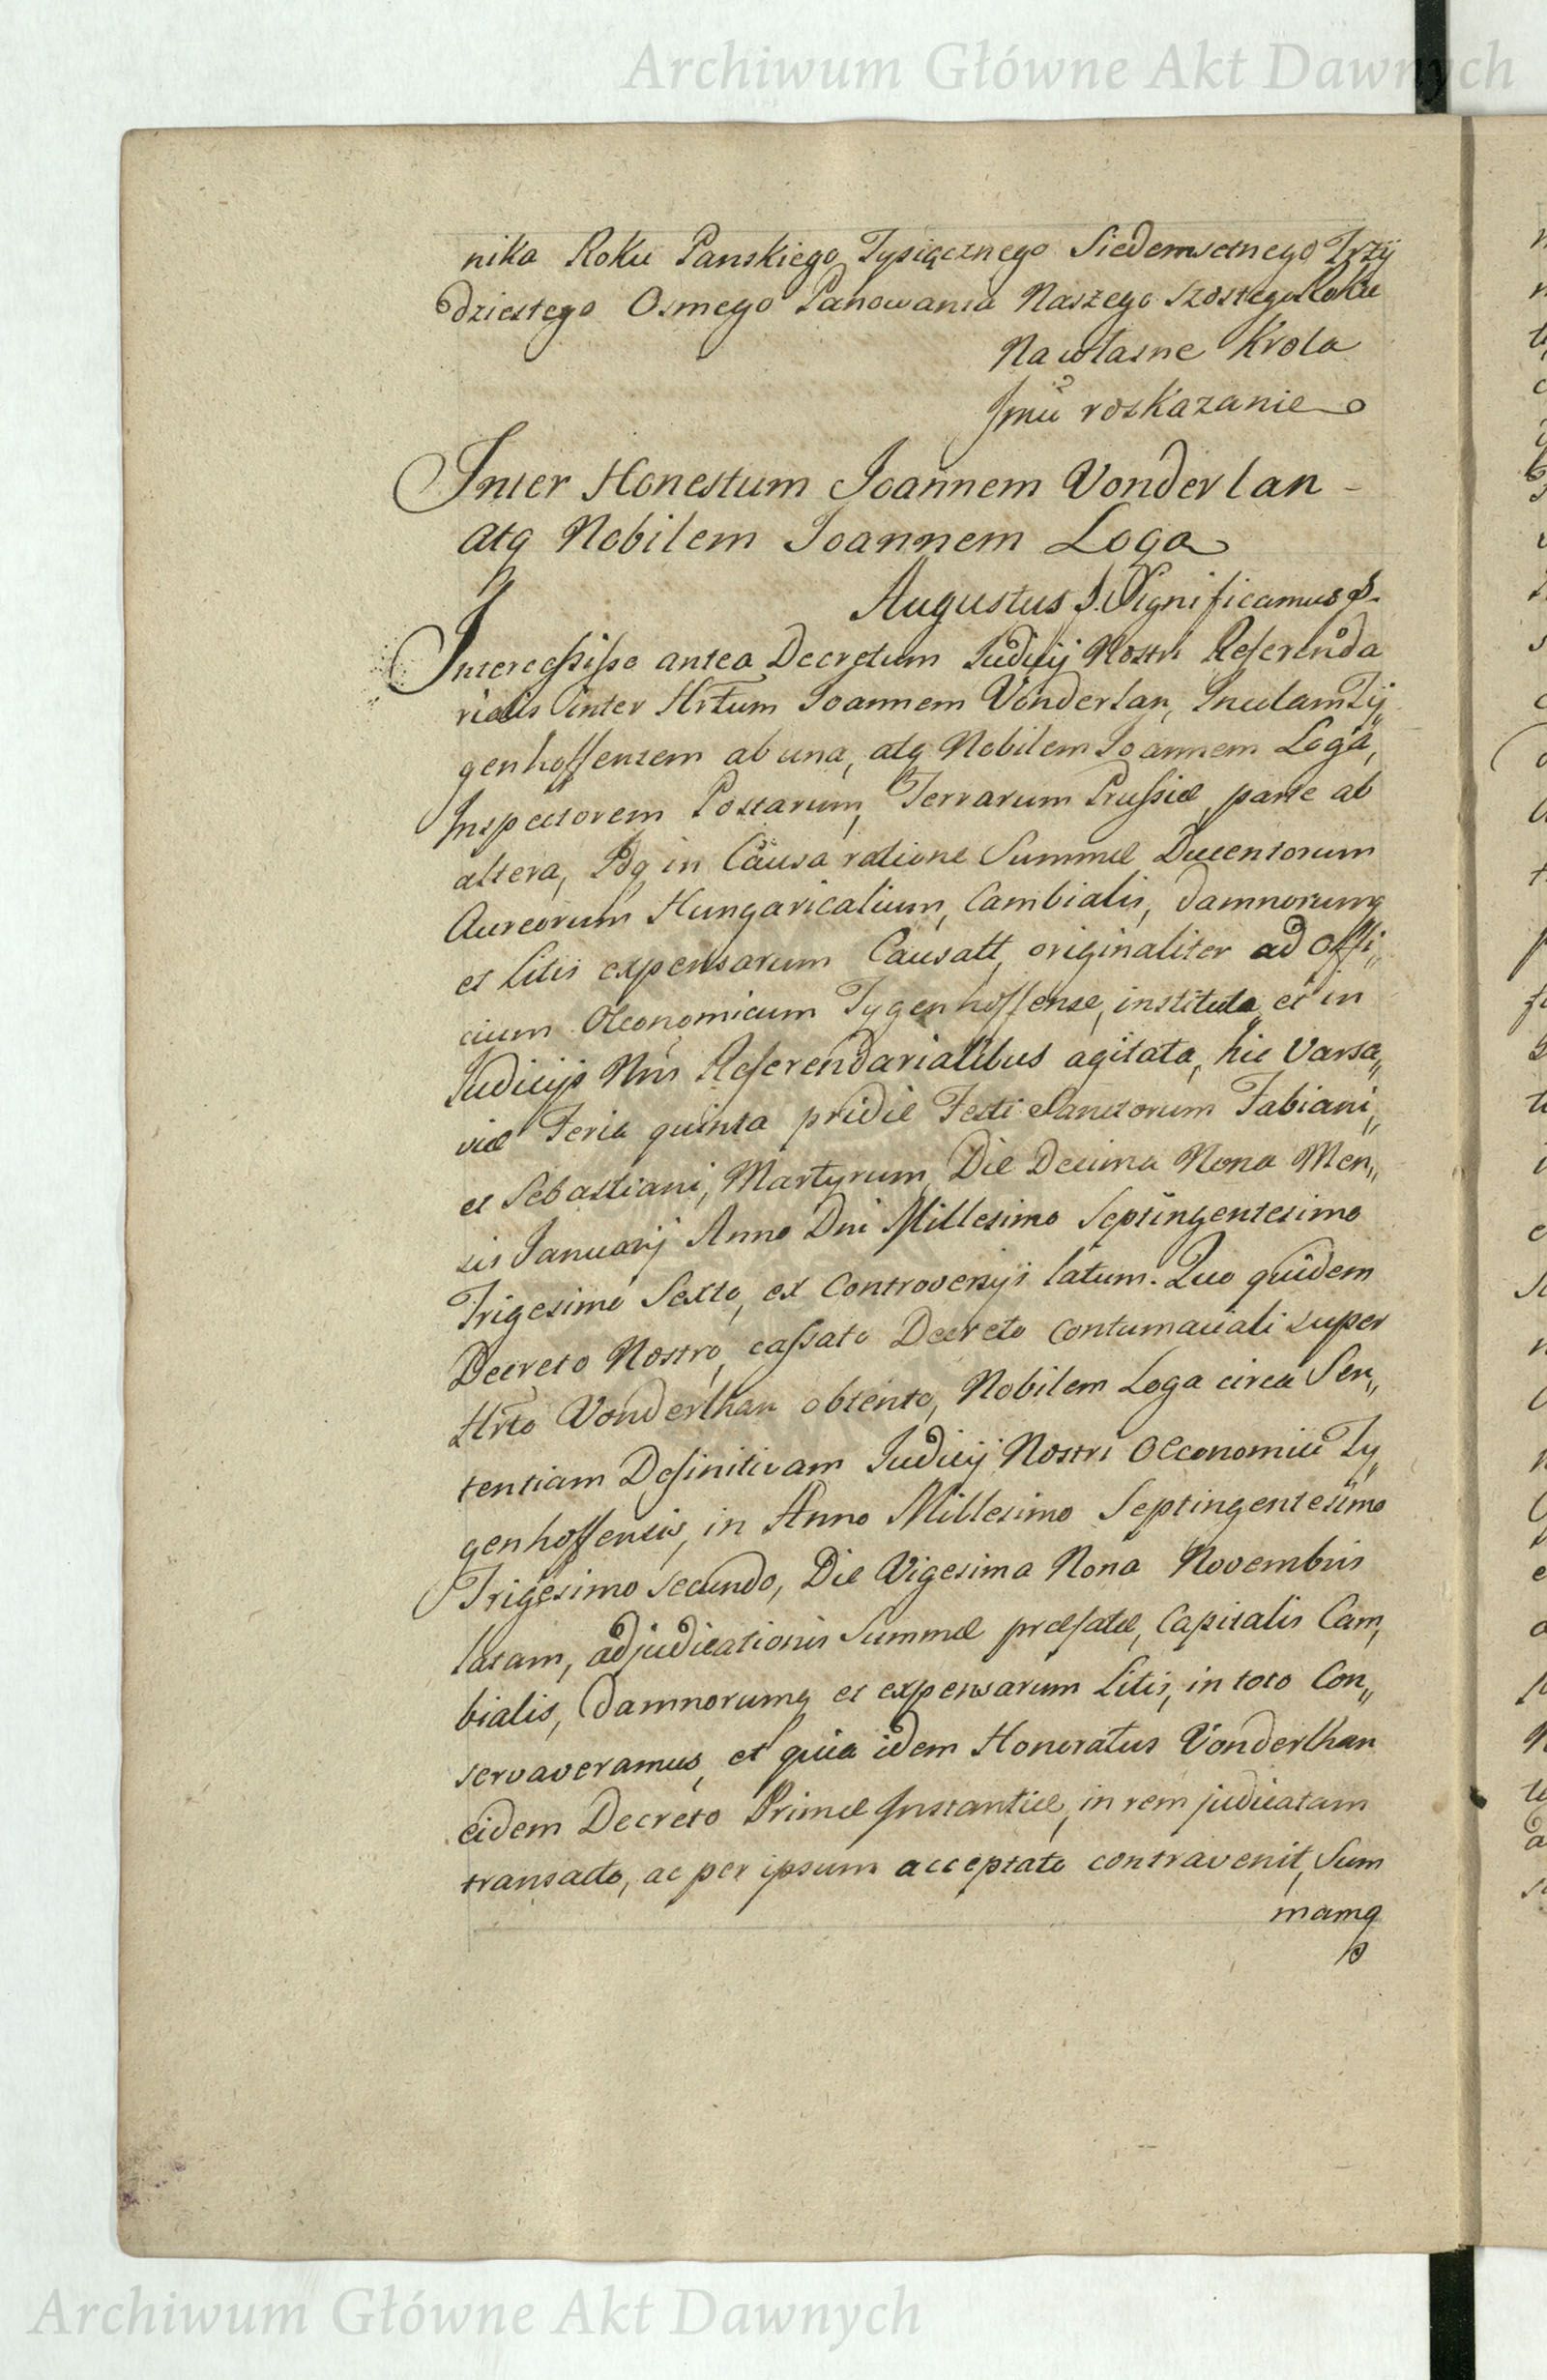 Archiwum Główne Akt Dawnych
nika Roku Panskiego Tysiącznego Siedemsetnego Trzy
dziestego Osmego Panowania Naszego Szostego Roku
Na własne Krola
Jmci roskazanie
Inter Honestum Joannem Vonderlan -
atq Nobilem Joannem Loga
Augustus S. Significamus &.
Intercessisse antea Decretum Judicij Nostri Referenda
rialis inter Hrtum Joannem Vonderlan, Incolam Ty„
genhoffensem ab una, atq Nobilem Joannem Loga,
Inspectorem Postarum, Terrarum Prussiæ, parte ab
altera, Idq in Causa ratione Summæ Ducentorum
Aureorum Hungaricalium, Cambialis, damnorumq
et Litis expensarum Causatt, originaliter ad Offi„
cium Oeconomicum Tygenhoffense, instituta, et in
Judicijs Nris Referendarialibus agitata, hic Varsa„
viæ Feria quinta pridie Festi Sanctorum Fabiani„
et Sebastiani, Martyrum, Die Decima Nona Men„
sis Januarij Anno Dni Millesimo Septingentesimo
Trigesimo Sexto, ex Controversijs latum. Quo quidem
Decreto Nostro, cassato Decreto contumaciali super
Hrto Vonderlhan obtento, Nobilem Loga circa Sen„
tentiam Definitivam Judicij Nostri Oeconomici Ty„
genhoffensis, in Anno Millesimo Septingentesimo
Trigesimo secundo, Die Vigesima Nona Novembris
latam, adjudicationis Summæ præfatæ, Capitalis Cam„
bialis, damnorumq et expensarum Litis, in toto Con„
servaveramus, et quia idem Honoratus Vonderlhan
eidem Decreto Primæ Instantiæ, in rem judicatam
transacto, ac per ipsum acceptato contravenit, Sum
mamq
Archiwum Główne Akt Dawnych